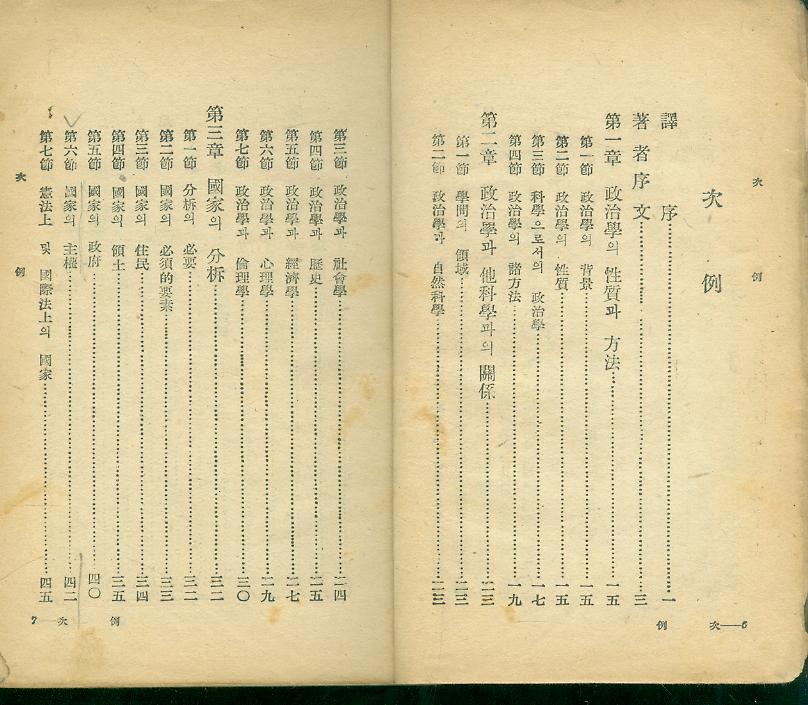 次 例
次 例
譯 序 一
著者序文 三
第一章 政治學의 性質과 方法 一五
第一節 政治學의 背景 一五
第二節 政治學의 性質 一五
第三節 科學으로서의 政治學 一七
第四節 政治學의 諸方法 一九
第二章 政治學과 他科學과의 關係 二三
第一節 學問의 領域 二三
第二節 政治學과 自然科學 二三
次 例 6
第三節 政治學과 社會學 二四
第四節 政治學과 歷史 二五
第五節 政治學과 經濟學 二七
第六節 政治學과 心理學 二九
第七節 政治學과 倫理學 三〇
第三章 國家의 分析 三二
第一節 分析의 必要 三二
第二節 國家의 必須的要素 三三
第三節 國家의 住民 三四
第四節 國家의 領土 三五
第五節 國家의 政府 四〇
第六節 國家의 主權 四二
第七節 憲法上 및 國際法上의 國家 四五
次 例
7 次 例